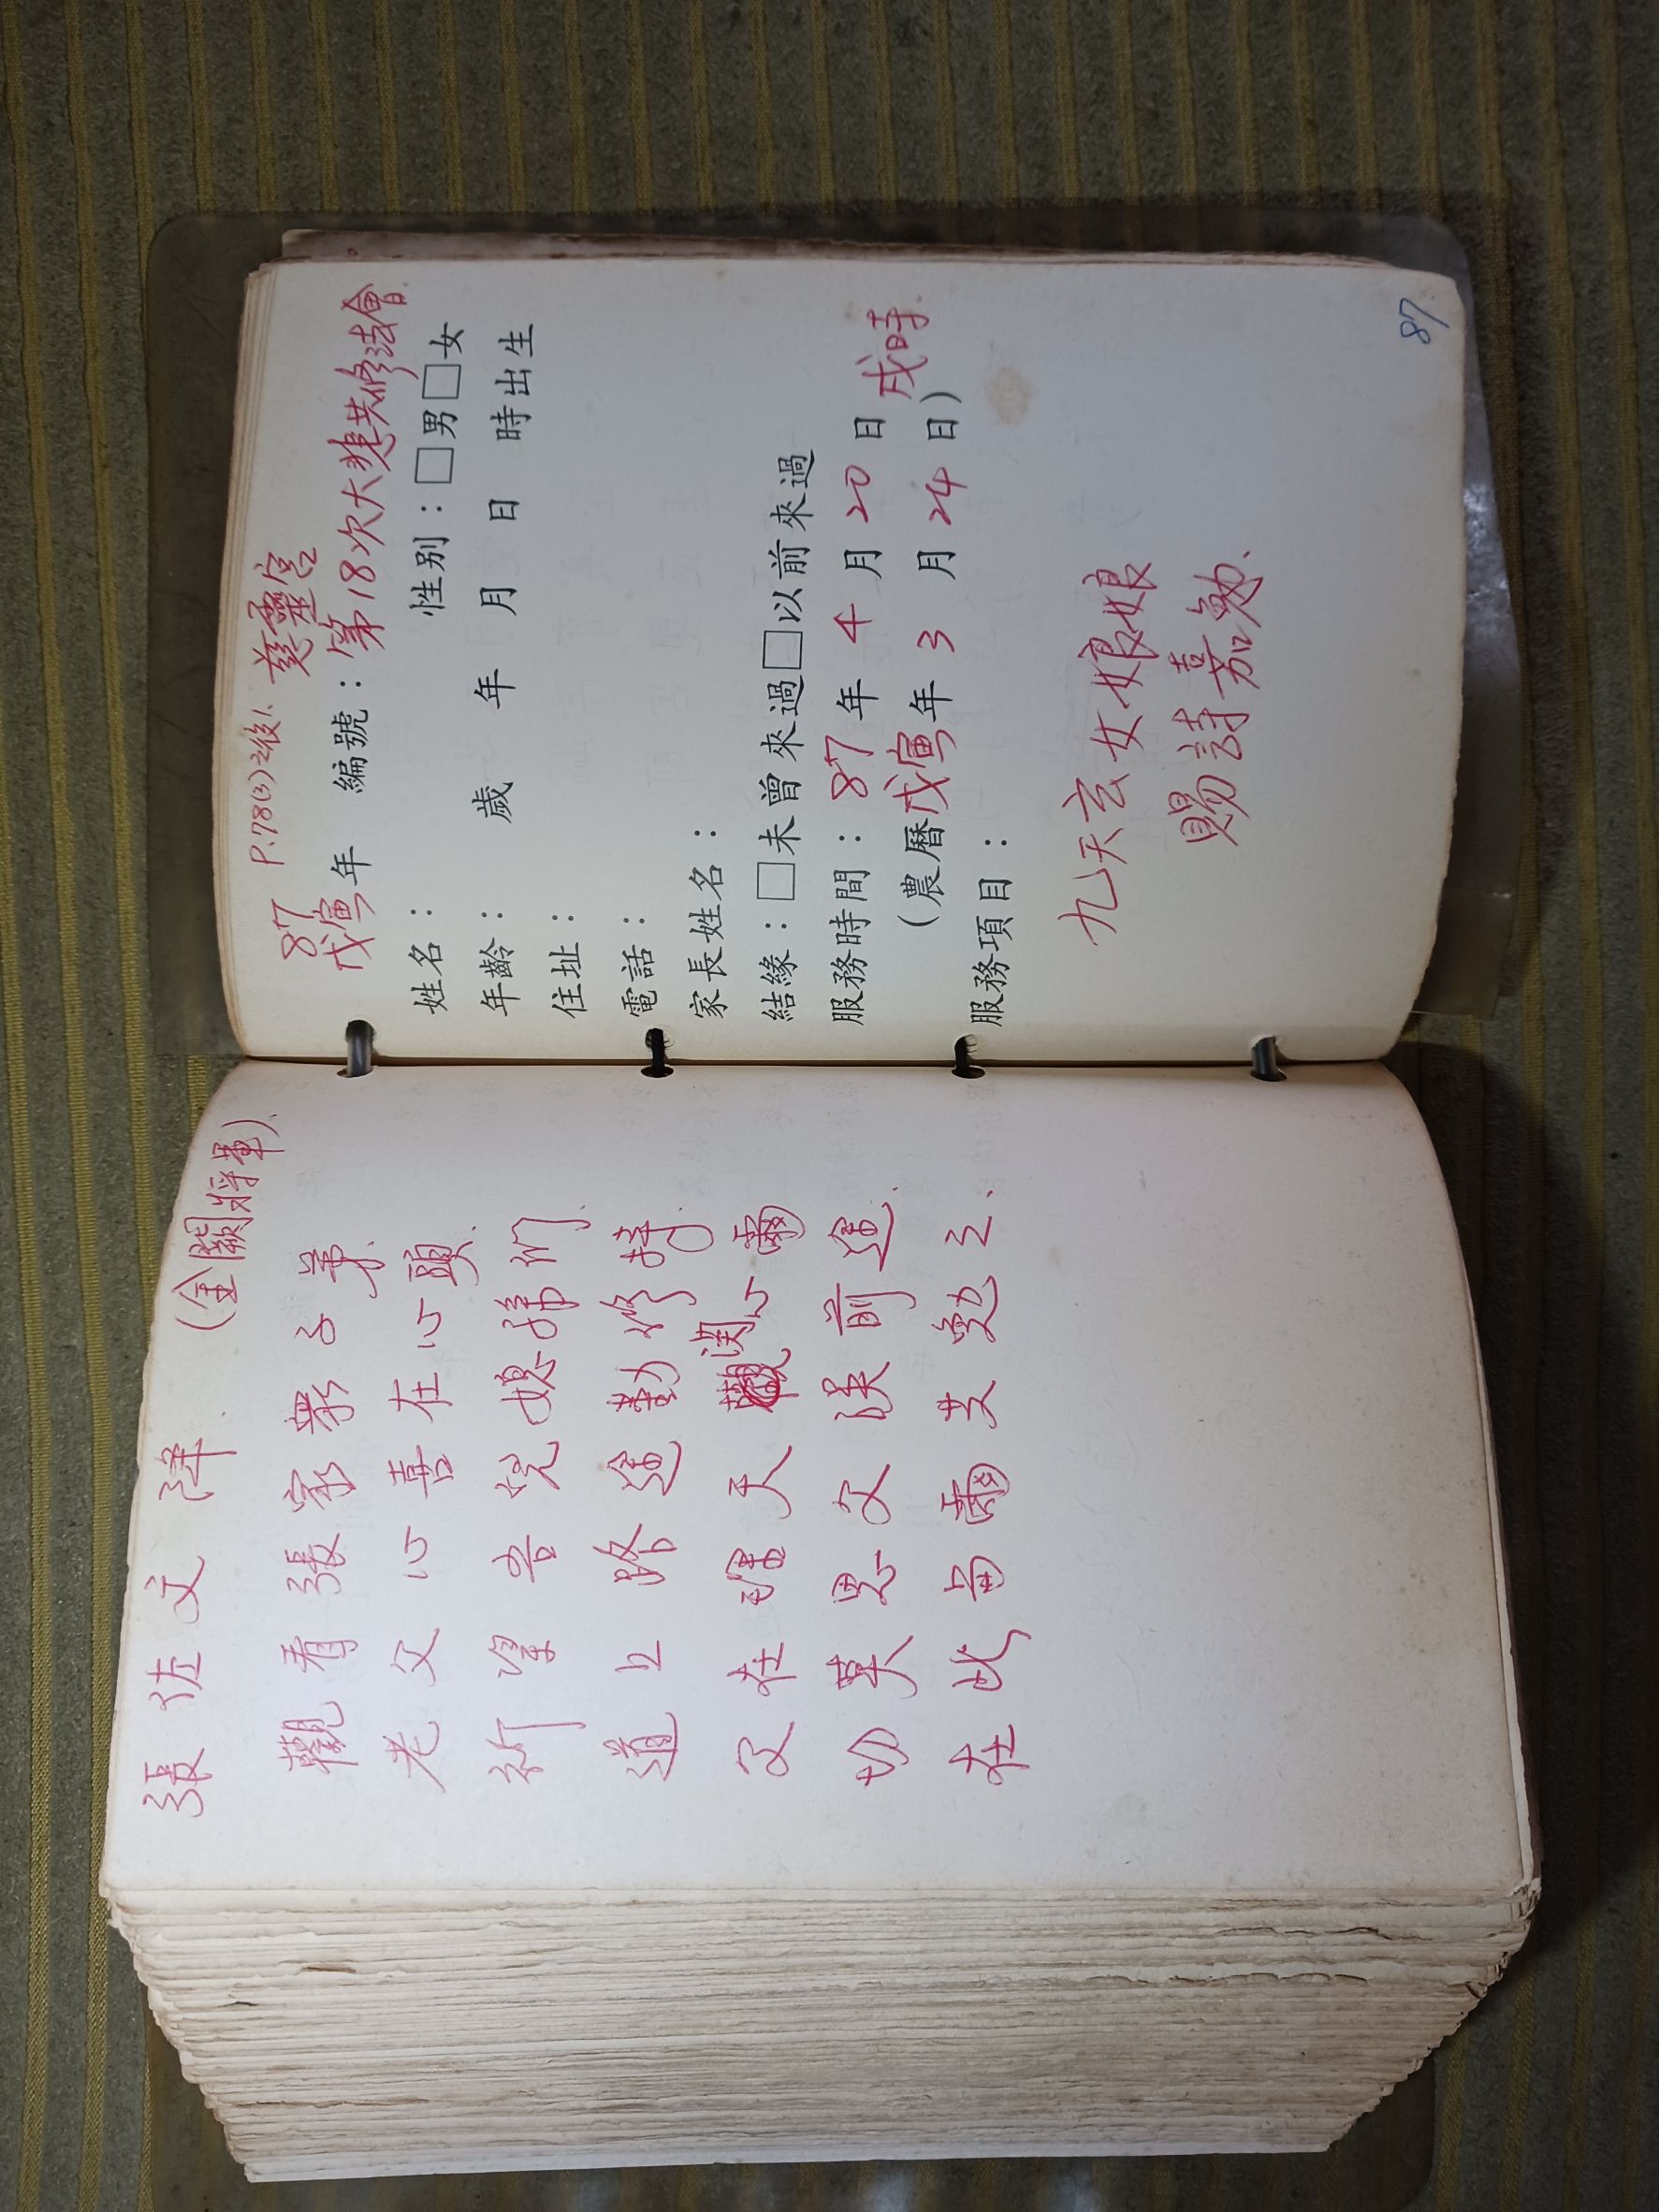 張佐文降 (金闕將軍).
觀看張家衆子弟.
老父心喜在心頭.
祈望吾兒媳孫們.
道上路途勤修持
父在瑤天関心爾.
切莫思父誤前途.
在此与爾共勉之.
P.78(3)之後1. 慈靈宮
87
戊寅年 編號：第18次大悲共修法會.
姓名： 性別：□男□女
年齡： 歲 年 月 日 時出生
住址：
電話：
家長姓名：
結緣：□未曾來過□以前來過
服務時間：87年4月20日 戌時.
(農曆戊寅年3月24日)
服務項目：
九天玄女娘娘
賜詩嘉勉.
87